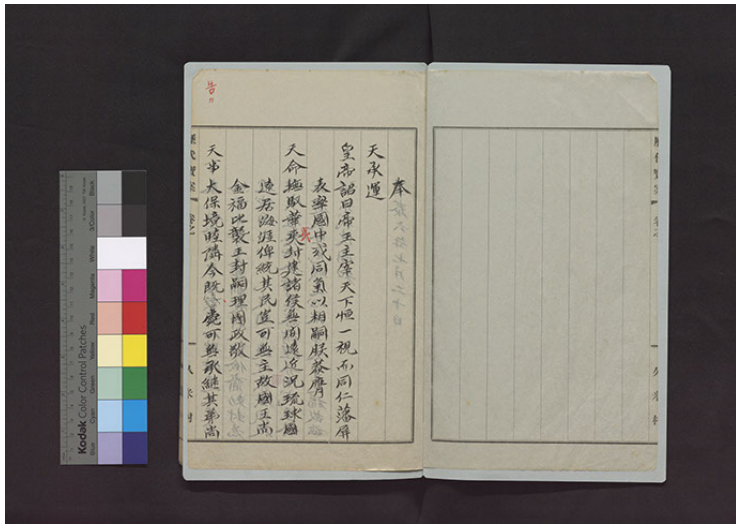 Kodak Color Control Patches
Blue Cyan Green Yellow Red Magenta White 3/Color Black
奉
天承運
皇帝詔曰帝王主宰天下恒一視而同仁藩屏
表率國中或同氣以相嗣朕恭膺
天命撫馭華夷封建諸侯無間遠近況琉球國
遠居海涯俾統其民豈可無主故國王尚
金福比襲王封嗣理國政敬
天事大保境睦隣今既薨可無承継其弟尚